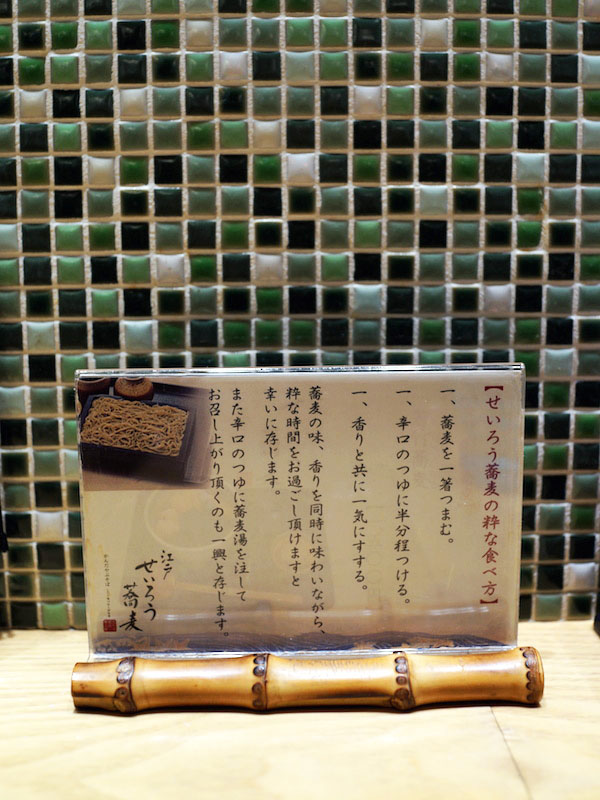 【せいろう蕎麦の粋な食べ方】
一、蕎麦を一箸つまむ。
一、辛口のつゆに半分程つける。
一、香りと共に一気にすする。
蕎麦の味、香りを同時に味わいながら、
粋な時間をお過ごし頂けますと
幸いに存じます。
また辛口のつゆに蕎麦湯を注して
お召し上がり頂くのも一興と存じます。
江戸
せいろう
蕎麦